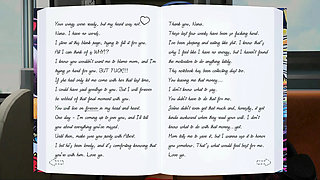 Your wings were ready, but my heart was not.
Nana. I have no words.
I stare at this blank page, trying to fill it for you.
All I can think of is WHY!?
I know you wouldn't want me to blame mom, and I'm
trying so hard for you. BUT FUCK!!!
If she had only let me come with her that last time,
I could have said goodbye to you. But I will forever
be robbed of that final moment with you.
You will live on forever in my mind and heart.
One day - I'm coming up to see you, and I'll tell
you about everything you've missed.
Until then, make sure you party with Albert.
I bet he's been lonely, and it's comforting knowing that
you're with him. Love ya.
Thank you, Nana.
These last four weeks have been so fucking hard.
I've been sleeping and eating like shit. I know that's
why I feel like I have no energy, but I haven't found
the motivation to do anything lately.
This notebook has been collecting dust too.
You leaving me that money....
I don't know what to say.
You didn't have to do that for me.
Jaime didn't even get that much and, honestly, it got
kinda awkward when they read your will. I don't
know what to do with that money.. yet.
Mom tells me to save it, but I wanna use it to honor
you somehow. That's what would feel best for me.
Love ya.